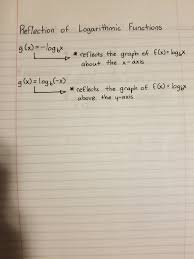 Reflection of Logarithmic Functions
g(x) = -log_b x
* reflects the graph of f(x) = log_b x
about the x-axis
g(x) = log_b (-x)
* reflects the graph of f(x) = log_b x
above the y-axis